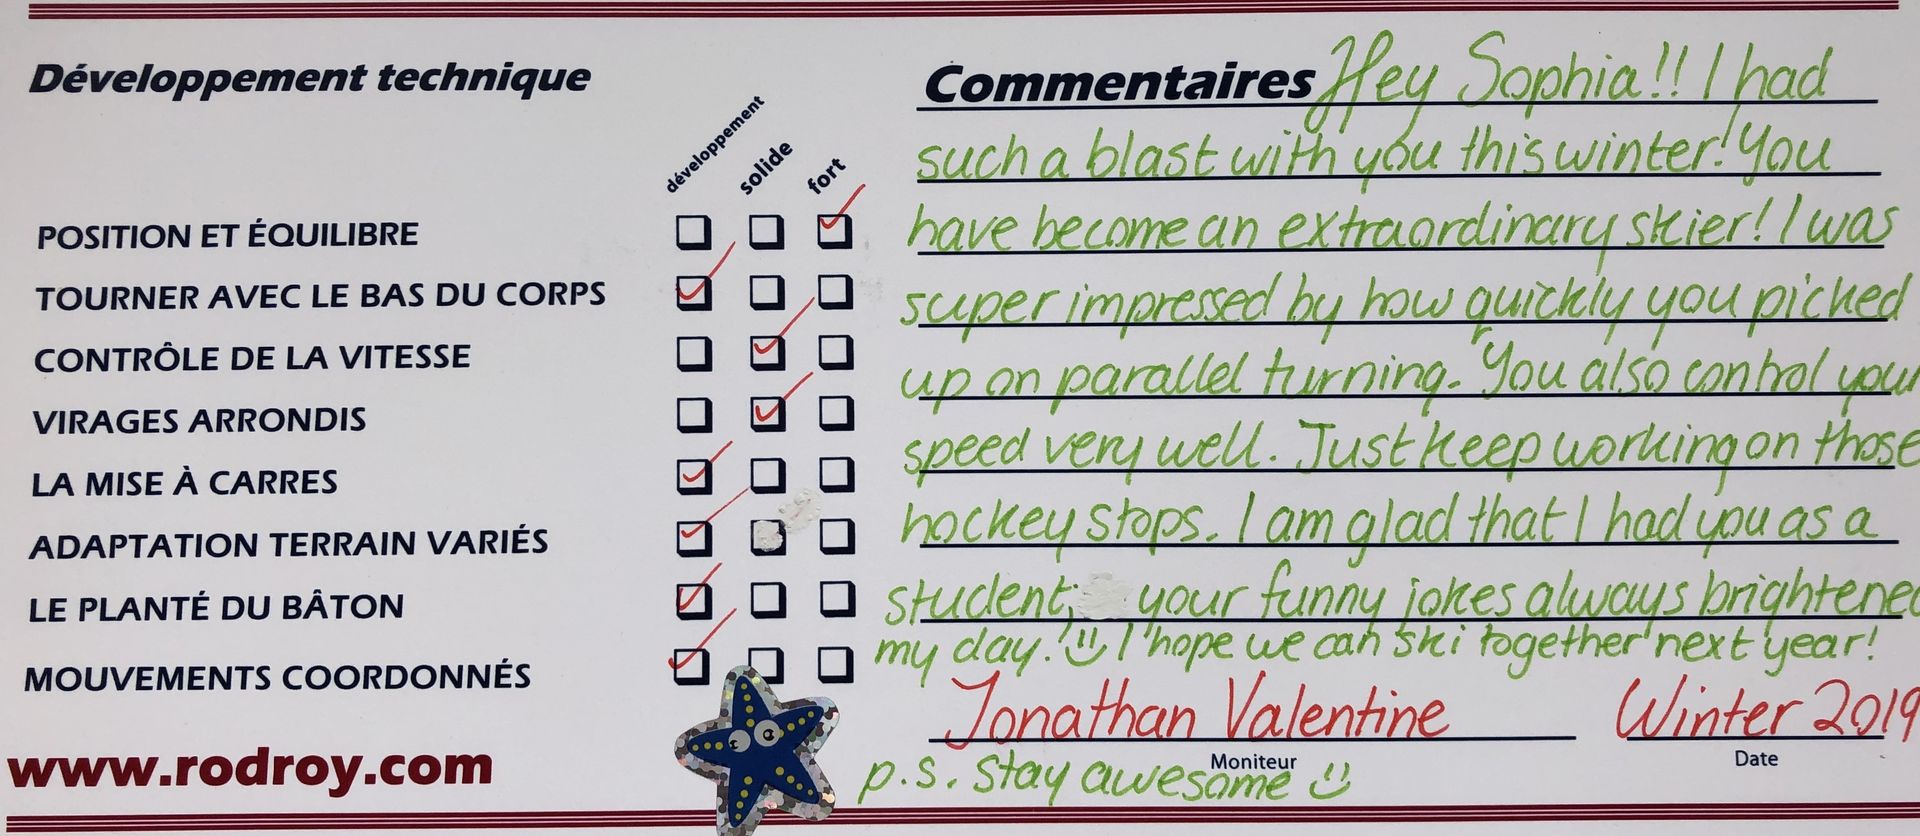 Développement technique
développement
solide
fort
POSITION ET ÉQUILIBRE
TOURNER AVEC LE BAS DU CORPS
CONTRÔLE DE LA VITESSE
VIRAGES ARRONDIS
LA MISE À CARRES
ADAPTATION TERRAIN VARIÉS
LE PLANTÉ DU BÂTON
MOUVEMENTS COORDONNÉS
www.rodroy.com
Commentaires Hey Sophia!! I had
such a blast with you this winter! You
have become an extraordinary skier! I was
super impressed by how quickly you picked
up on parallel turning. You also control your
speed very well. Just keep working on those
hockey stops. I am glad that I had you as a
student; your funny jokes always brightened
my day! I hope we can ski together next year!
Jonathan Valentine Winter 2019
Moniteur Date
p.s. stay awesome